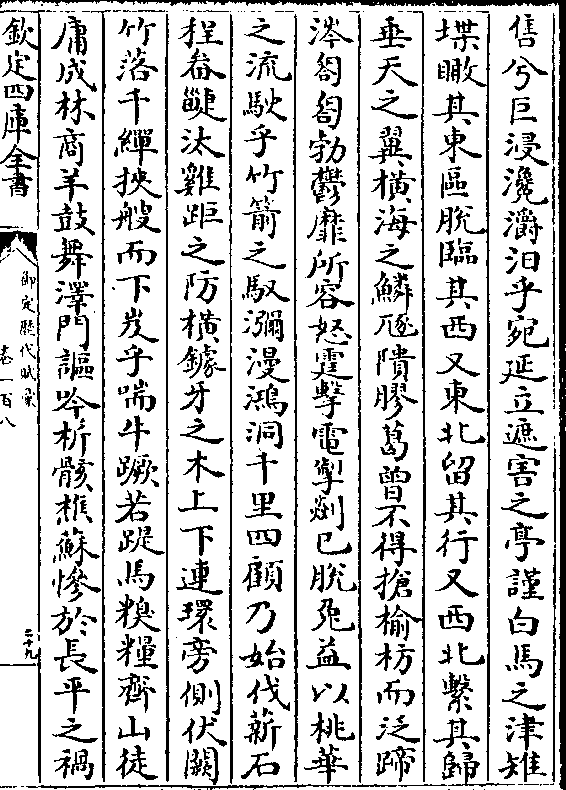 售兮巨浸瀺灂汩乎宛延立遮害之亭謹白馬之津雉
堞瞰其東區脫臨其西又東北留其行又西北繫其歸
垂天之翼橫海之鱗豗隤膠葛曾不得搶榆枋而泛蹄
涔匌匌勃鬱靡所容怒霆擊電掣劙已脫兔益以桃華
之流駃乎竹箭之馭瀰漫鴻洞千里四顧乃始伐薪石
桯畚䢮汰雞距之防橫鐻牙之木上下連環旁側伏闕
竹落千繟挾艘而下岌乎喘牛蹶若踶馬糗糧齊山徒
庸成林商羊鼓舞澤門謳吟析骸樵蘇慘於長平之禍
欽定四庫全書
御定歷代賦彙
卷一百八
二十九